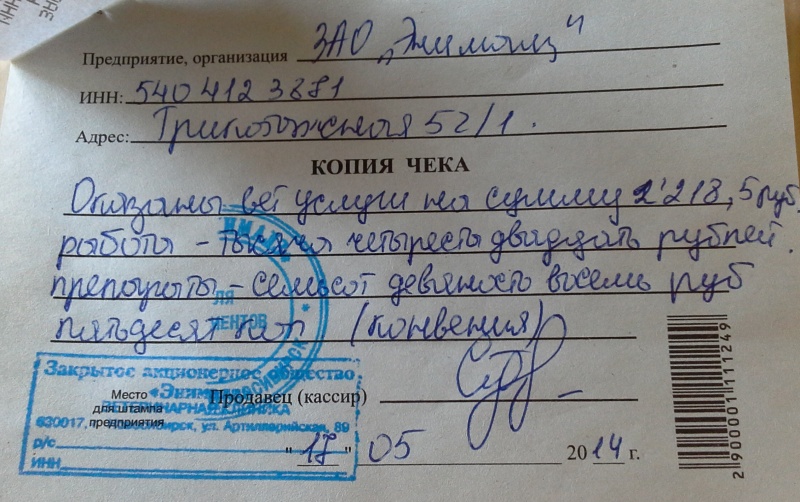 Предприятие, организация ЗАО „Энимал"
ИНН: 5404123871
Адрес: Трикотажная 52/1.
КОПИЯ ЧЕКА
Оказаны вет услуги на сумму 2'218,5 руб.
работа - тысяча четыреста двадцать рублей.
препараты - семьсот девяносто восемь руб
пятьдесят коп (конвения)
Закрытое акционерное общество
Место для штампа предприятия
Продавец (кассир)
ВЕТЕРИНАРНАЯ КЛИНИКА
630017, Новосибирск, ул. Артиллерийская, 89
р/с
ИНН
"17" 05 2014 г.
2900001111249